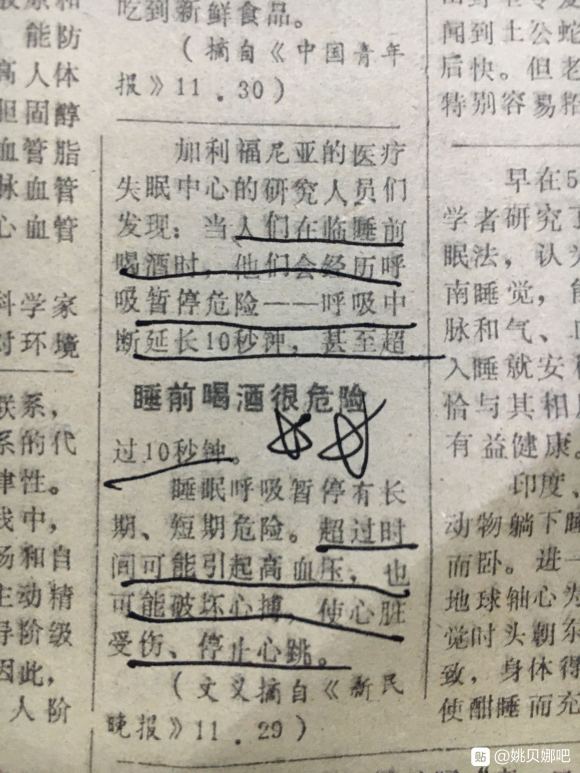 能防
高人体
胆固醇
血管脂
脉血管
心血管
科学家
对环境
联系，
系的代
律性。
中，
场和自
主动精
导阶级
因此，
人阶
吃到新鲜食品。
（摘自《中国青年
报》11．30）
加利福尼亚的医疗
失眠中心的研究人员们
发现：当人们在临睡前
喝酒时，他们会经历呼
吸暂停危险——呼吸中
断延长10秒钟，甚至超
睡前喝酒很危险
过10秒钟。
睡眠呼吸暂停有长
期、短期危险。超过时
间可能引起高血压，也
可能破坏心搏，使心脏
受伤、停止心跳。
（文义摘自《新民
晚报》11．29）
闻到土公蛇
后快。但老
特别容易
早在5
学者研究了
眠法，认为
南睡觉，
脉和气、
入睡就安
恰与其相
有益健康。
印度、
动物躺下睡
而卧。进一
地球轴心为
觉时头朝东
致，身体得
使酣睡而充
贴 @姚贝娜吧